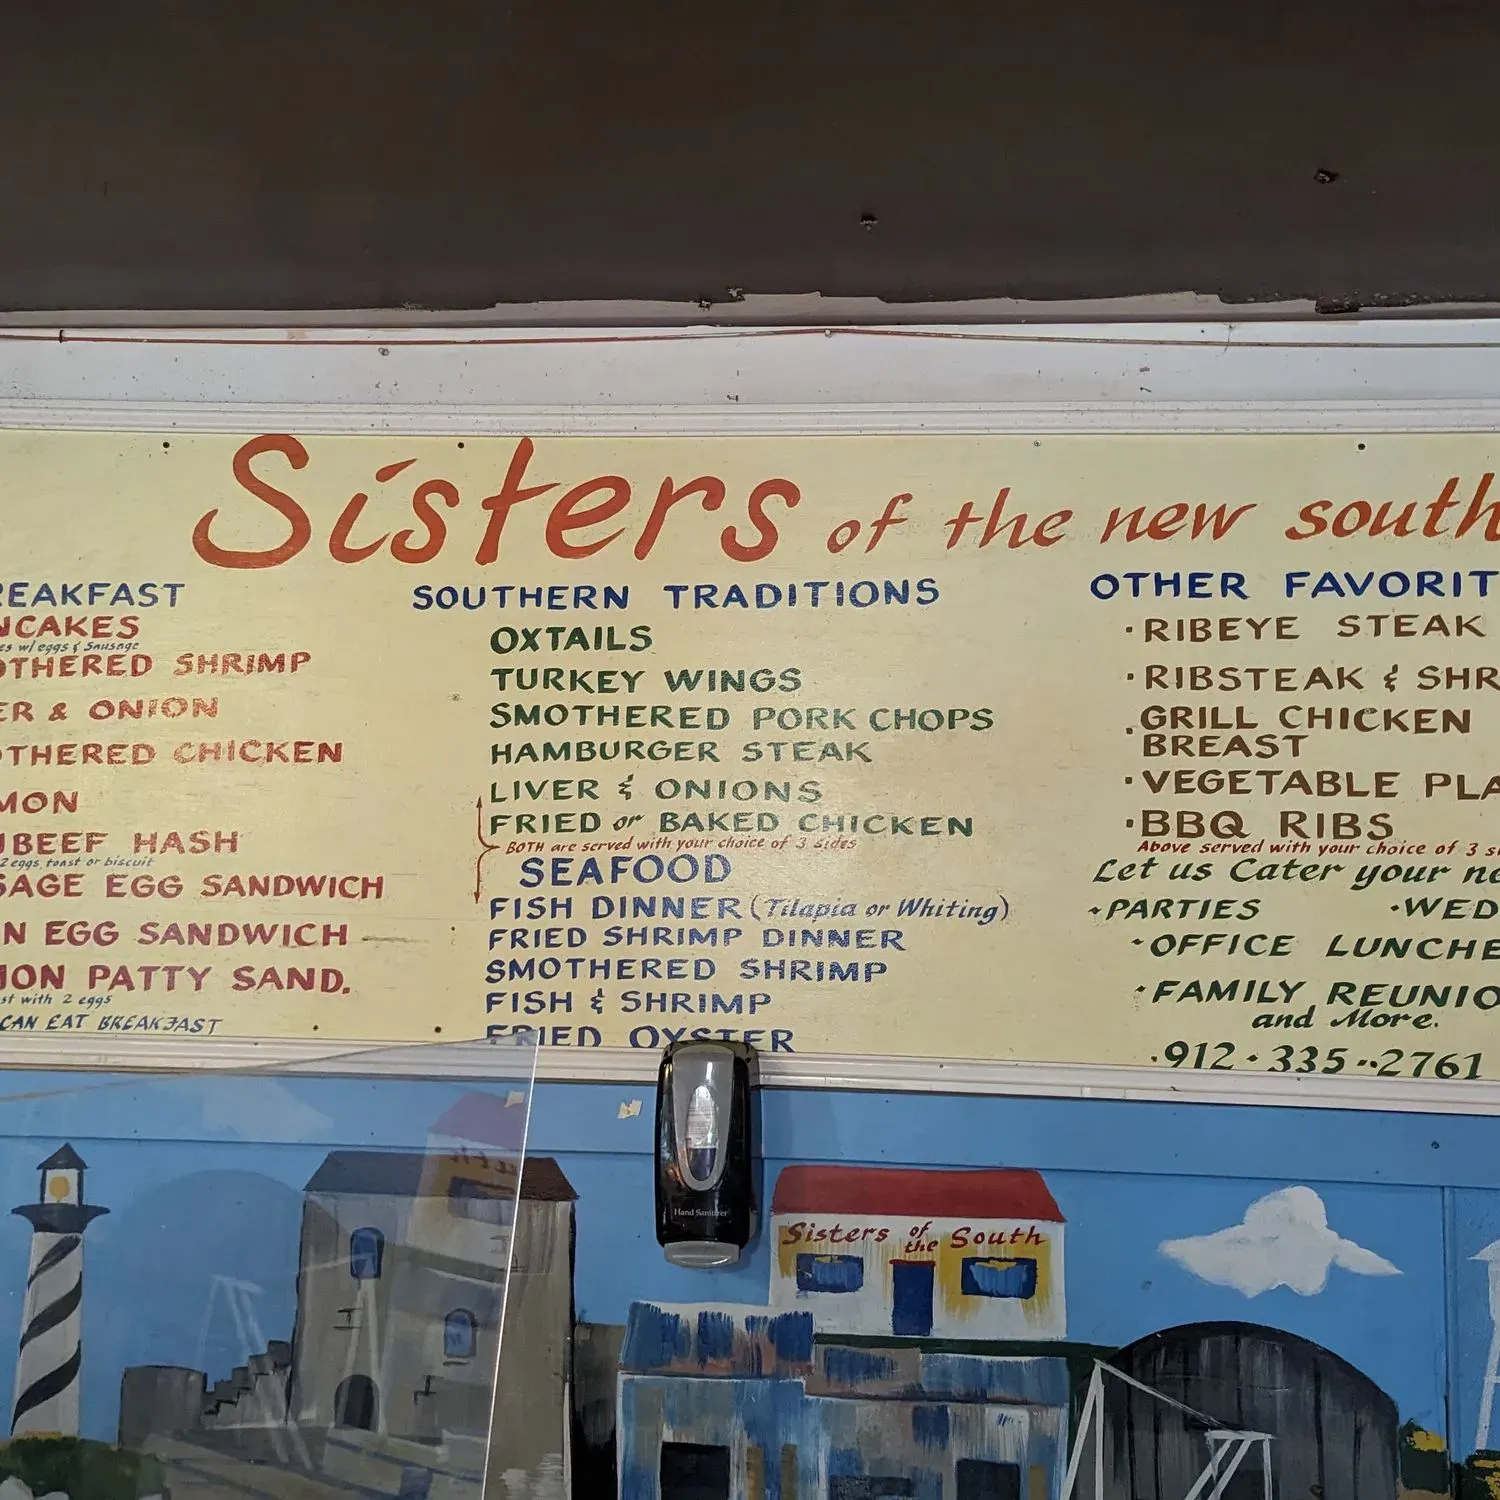 Sisters of the new south
REAKFAST
NCAKES
es w/eggs & Sausage
OTHERED SHRIMP
ER & ONION
OTHERED CHICKEN
MON
BEEF HASH
2 eggs toast or biscuit
SAGE EGG SANDWICH
N EGG SANDWICH
MON PATTY SAND.
st with 2 eggs
CAN EAT BREAKFAST
SOUTHERN TRADITIONS
OXTAILS
TURKEY WINGS
SMOTHERED PORK CHOPS
HAMBURGER STEAK
LIVER & ONIONS
FRIED or BAKED CHICKEN
BOTH are served with your choice of 3 sides
SEAFOOD
FISH DINNER (Tilapia or Whiting)
FRIED SHRIMP DINNER
SMOTHERED SHRIMP
FISH & SHRIMP
FRIED OYSTER
OTHER FAVORIT
· RIBEYE STEAK
· RIBSTEAK & SHR
· GRILL CHICKEN
BREAST
· VEGETABLE PLA
· BBQ RIBS
Above served with your choice of 3 s
Let us Cater your ne
· PARTIES · WED
· OFFICE LUNCHE
· FAMILY REUNIO
and More.
· 912 · 335 ·· 2761
Hand Sanitizer
Sisters of the South